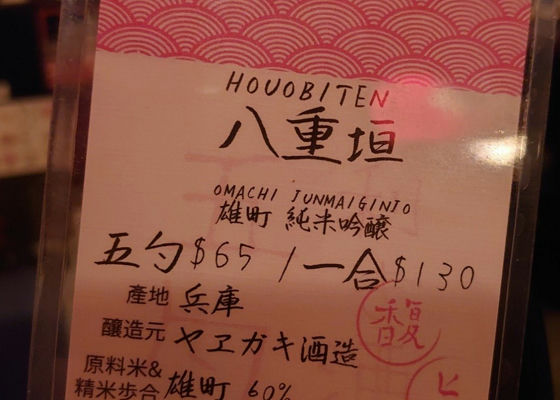 HOUOBITEN
八重垣
OMACHI JUNMAIGINJO
雄町 純米吟醸
五勺$65 / 一合$130
產地 兵庫
馥
醸造元 ヤヱガキ酒造
原料米&
精米歩合 雄町 60%